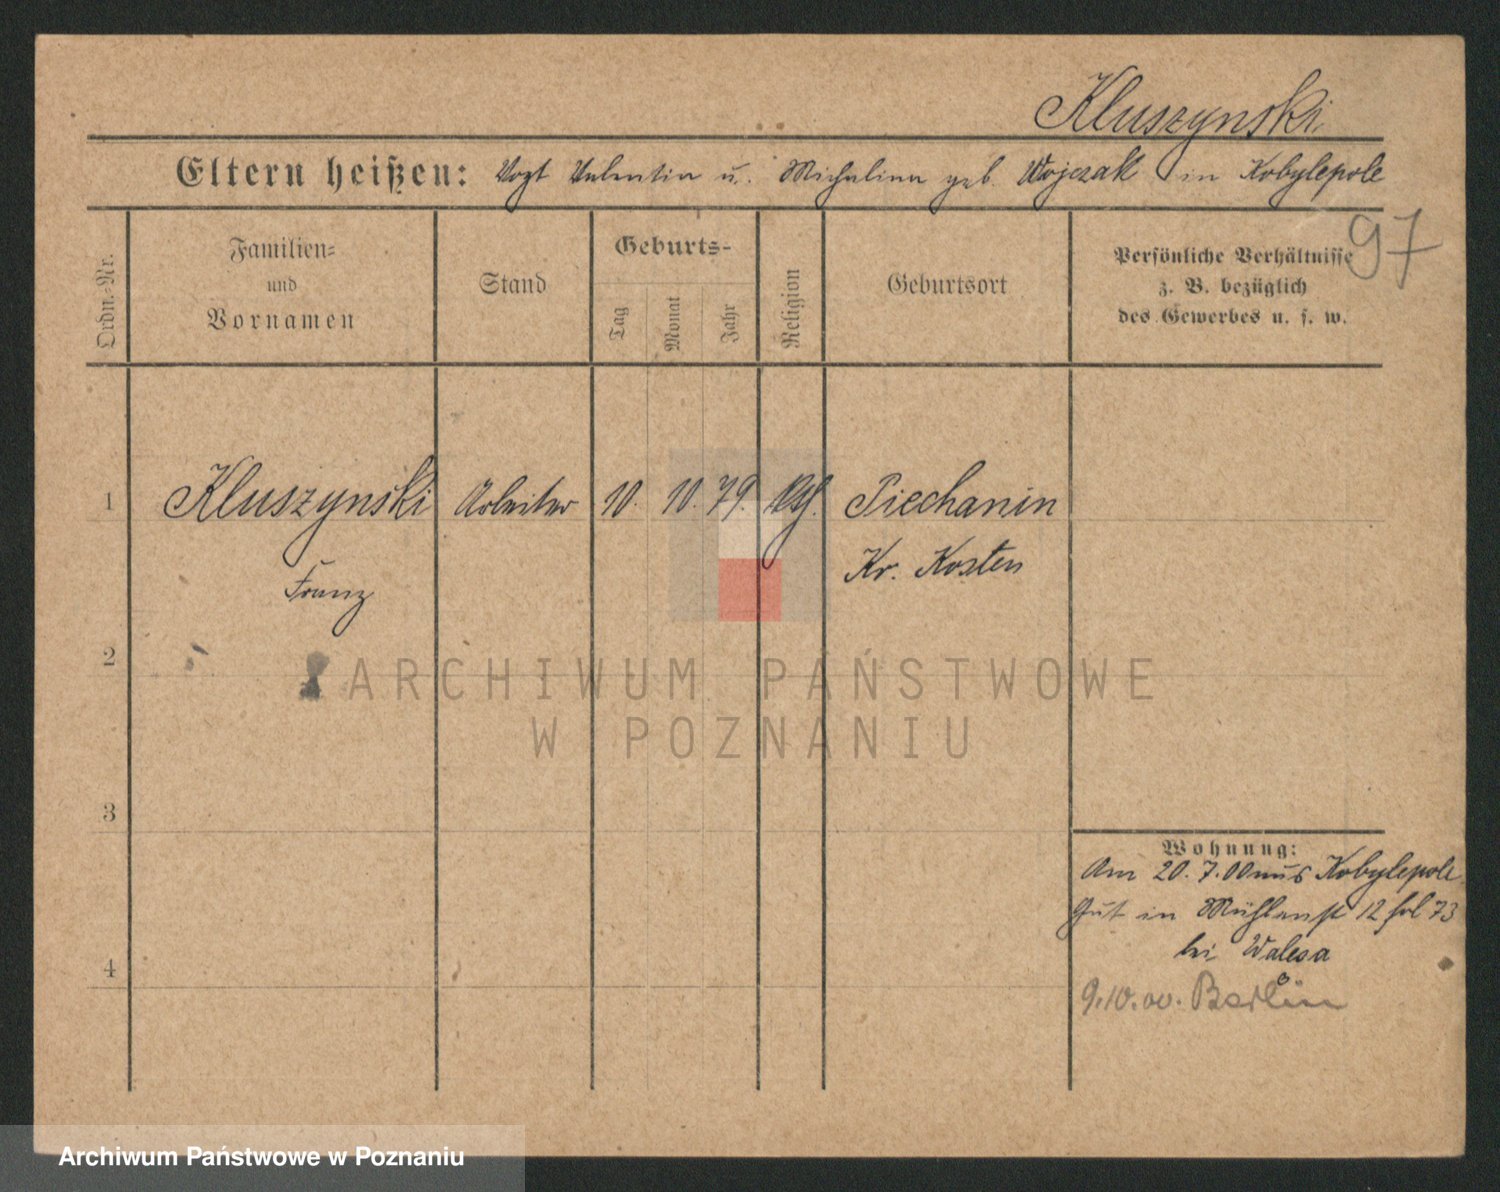 Kluszynski
Eltern heißen: Vogt Valentin u. Michalina geb Wojczak in Kobylepole
97
Ordn.-Nr.
Familien-
und
Vornamen
Stand
Geburts-
Tag
Monat
Jahr
Religion
Geburtsort
Persönliche Verhältnisse
z. B. bezüglich
des Gewerbes u. s. w.
1 Kluszynski Arbeiter 10. 10. 79. kth. Piechanin
Franz Kr. Kosten
2
ARCHIWUM PAŃSTWOWE
W POZNANIU
3
Wohnung:
Am 20.7.00 aus Kobylepole
Gut in Mühlenst 12 fol 73
bei Walesa
4
9.10.00. Berlin
Archiwum Państwowe w Poznaniu